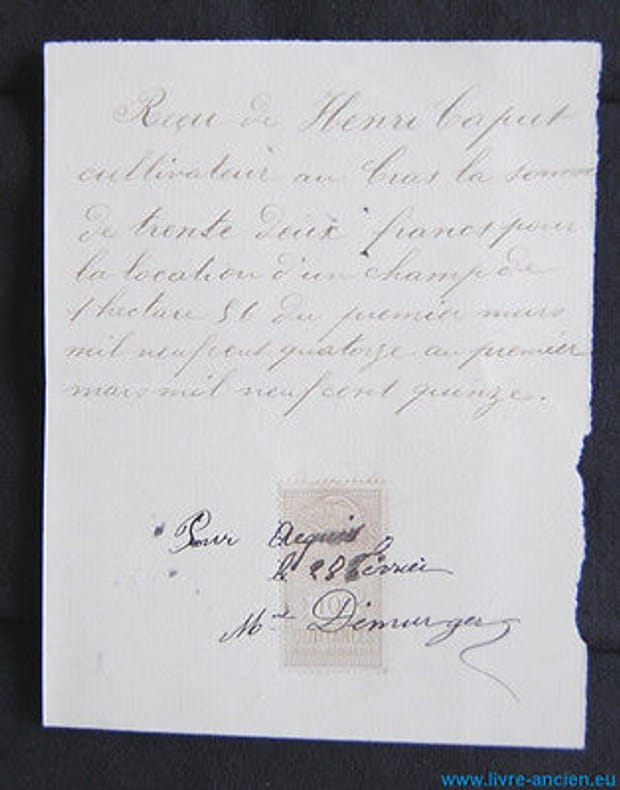 Reçu de Henri Caput
cultivateur au Cras la somme
de trente deux francs pour
la location d'un champ de
1 hectare 56 du premier mars
mil neuf cent quatorze au premier
mars mil neuf cent quinze.
Pour Acquis
le 28 février
10
QUITTANCES
Me Démurger
www.livre-ancien.eu